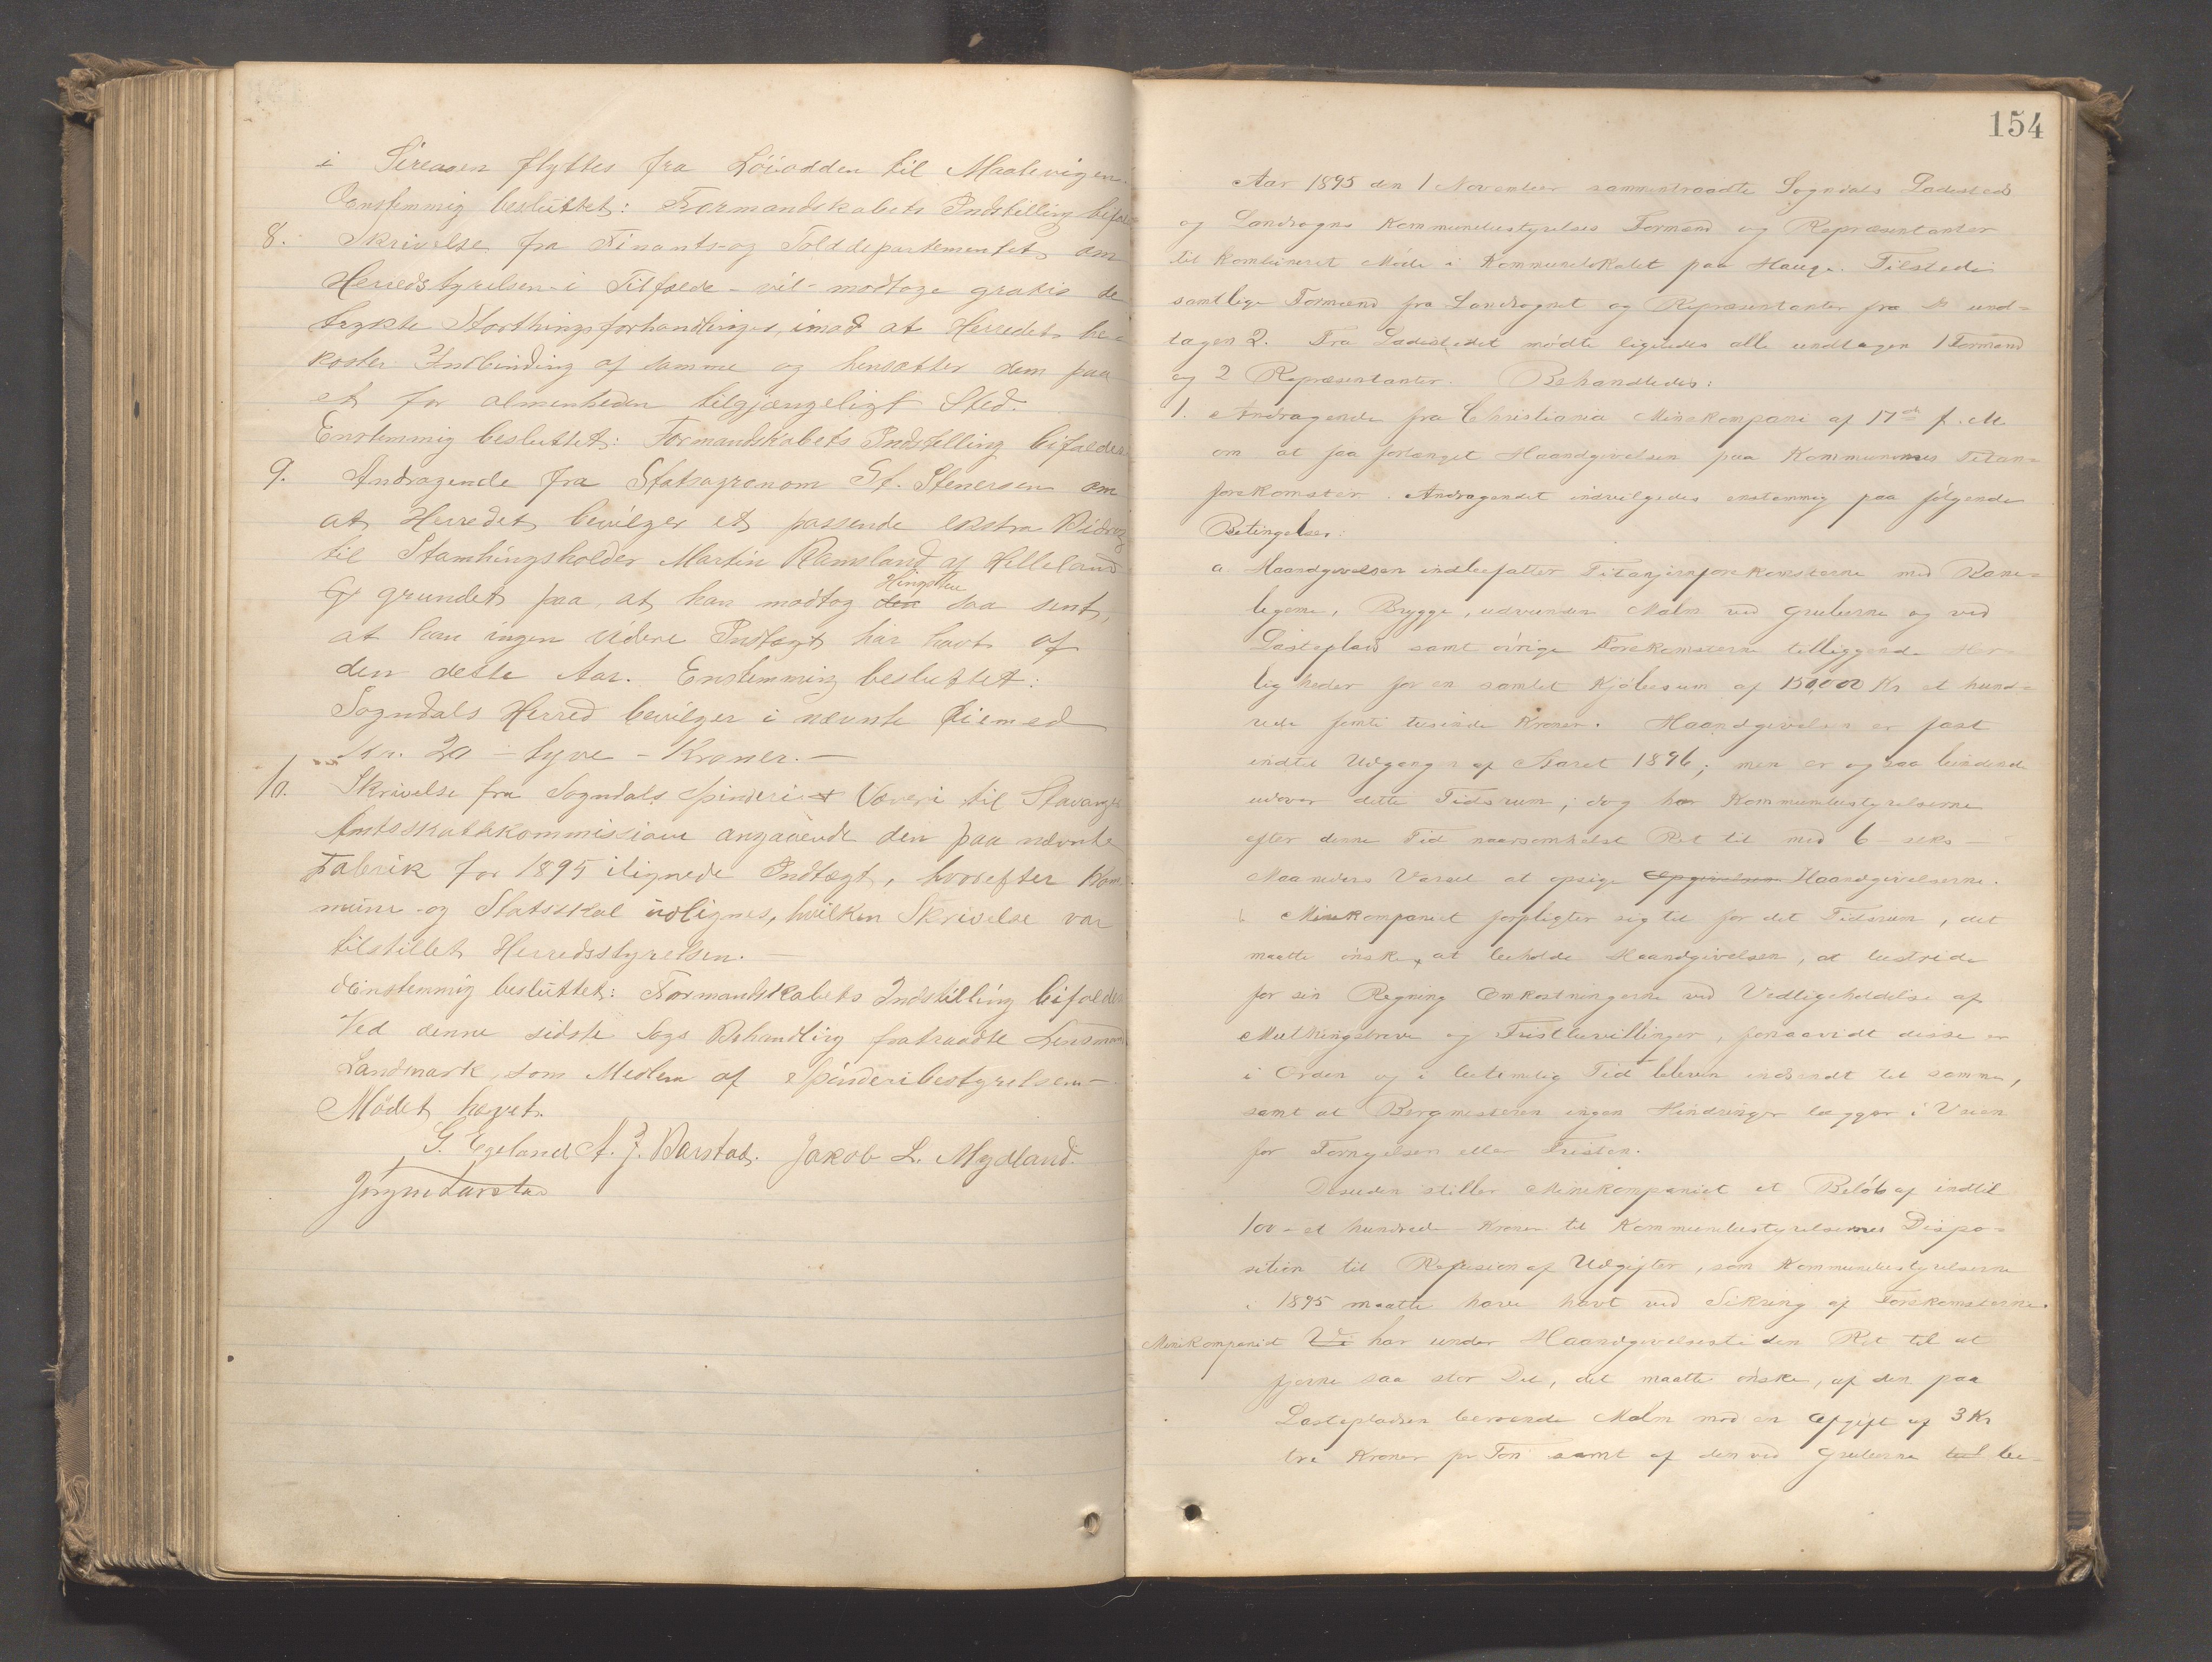 i Sireaaen flyttes fra Löiodden til Maalevigen.
Enstemmig besluttet: Formandskabets Indstilling bifal-
8. Skrivelse fra Finants- og Tolddepartementet om
Herredstyrelsen i Tilfælde – vil modtage gratis de
trykte Storthingsforhandlinger, imod at Herredet be-
koster Indbinding af samme og hensætter dem paa
et for almenheden tilgjængeligt Sted.
Enstemmig besluttet: Formandskabets Indstilling bifaldes.
9. Andragende fra Statsagronom St. Stenersen om
at Herredet bevilger et passende ekstra Bidrag
til Stamhingsholder Martin Ramsland af Helleland
grundet paa, at han modtog den Hingsten saa sent,
at han ingen videre Indtægt har havt af
den dette Aar. Enstemmig besluttet:
Sogndals Herred bevilger i nævnte Øiemed
Kr. 20 – tyve – Kroner. –
10. Skrivelse fra Sogndals Spinderi & Væveri til Stavanger
Amtsskattekommission angaaende den paa nævnte
Fabrik for 1895 ilignede Indtægt, hvorefter Kom-
mune- og Statsskat udlignes, hvilken Skrivelse var
tilstillet Herredsstyrelsen. –
Enstemmig besluttet: Formandskabets Indstilling bifaldes
Ved denne sidste Sags Behandling fratraadte Lensmand
Landmark, som Medlem af Spinderibestyrelsen –
Mödet hævet.
G. Egeland A. J. Barstad. Jakob L. Mydland.
Jörgen
154
Aar 1895 den 1 November sammentraadte Sogndals Ladesteds
og Landsogns Kommunebestyrelses Formænd og Repræsentanter
til kombineret Möde i Kommunelokalet paa Hauge. Tilstede
samtlige Formænd fra Landsognet og Repræsentanter fra und-
tagen 2. Fra Ladestedet mödte ligeledes alle undtagen 1 Formand
og 2 Repræsentanter. Behandledes:
1. Andragende fra Christiania Minekompani af 17de f. M.
om at faa forlænget Haandgivelsen paa Kommunernes Titan-
forekomster. Andragendet indvilgedes enstemmig paa fölgende
Betingelser:
a. Haandgivelsen indbefatter Titanjernforekomsterne med Bane-
legeme, Brygge, udvunden Malm ved Gruberne og ved
Lasteplads samt övrige Forekomsterne tilliggende Her-
ligheder for en samlet Kjöbesum af 150,000 Kr et hund-
rede femti tusinde Kroner. Haandgivelsen er fast
indtil Udgangen af Aaret 1896; men er ogsaa bindende
udover dette Tidsrum; dog har Kommunebestyrelserne
efter denne Tid naarsomhelst Ret til med 6 – seks –
Maaneders Varsel at opsige Opgivelsen Haandgivelserne.
b Minekompaniet forpligter sig til for det Tidsrum, det
maatte önske, at beholde Haandgivelsen, at bestride
for sin Regning Omkostningerne ved Vedligeholdelse af
Muthingsbreve og Fristbevillinger, forsaavidt disse er
i Orden og i betimelig Tid bleven indsendt til samme,
samt at Bergmesteren ingen Hindringer lægger i Veien
for Fornyelsen eller Fristen.
Desuden stiller Minekompaniet et Belöb af indtil
100 – et hundrede – Kroner til Kommunebestyrelsernes Dispo-
sition til Refusion af Udgifter, som Kommunebestyrelserne
i 1895 maatte have havt ved Sikring af Forekomsterne.
Minekompaniet Vi har under Haandgivelsestiden Ret til at
fjerne saa stor Del, det maatte önske, af den paa
Lastepladsen beroende Malm mod en Afgift af 3 Kr
tre Kroner pr Ton samt af den ved Gruberne be-